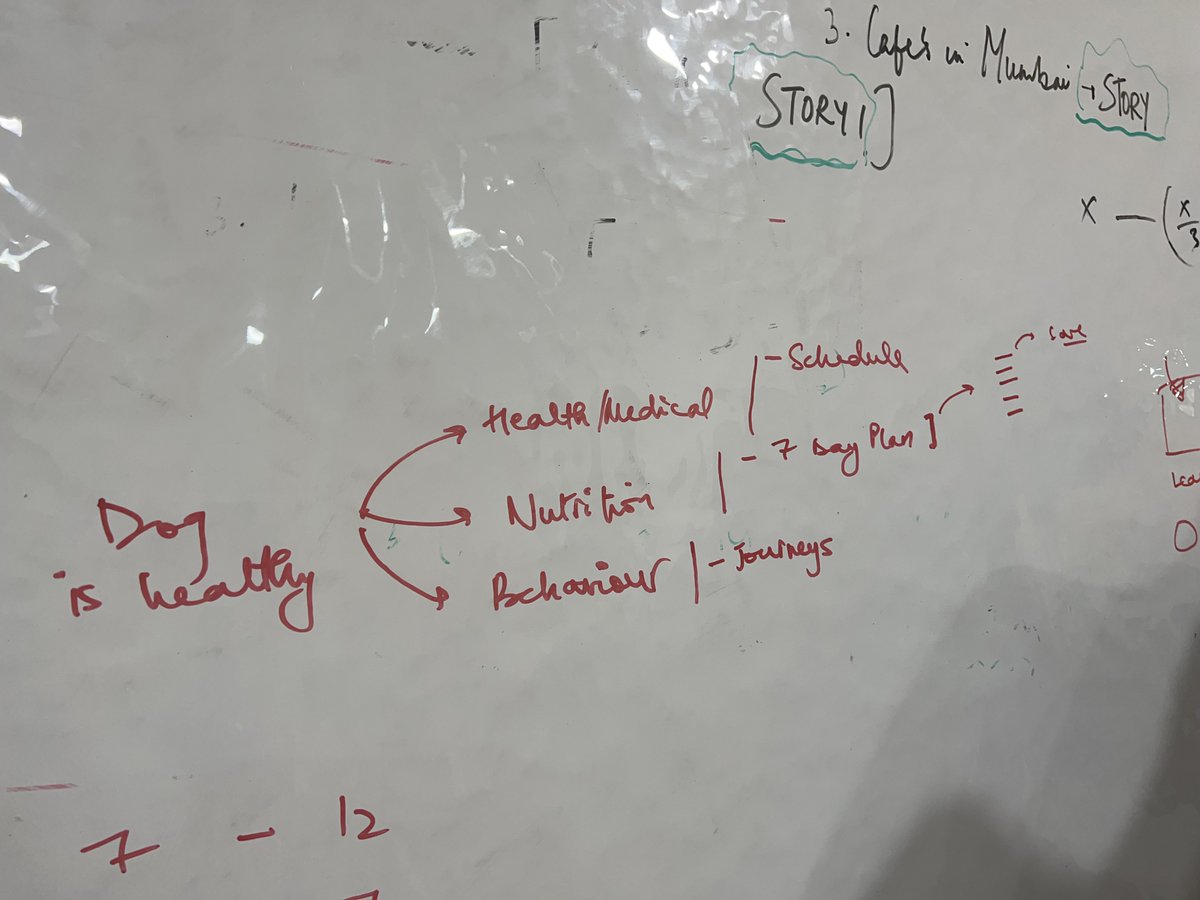 3. Cafe's in Mumbai → STORY
STORY 1]
x — (x/3
- Schedule
→ save
Health/Medical
- 7 Day Plan ]
Nutrition
Dog
is healthy
Behaviour
- Journeys
7 - 12